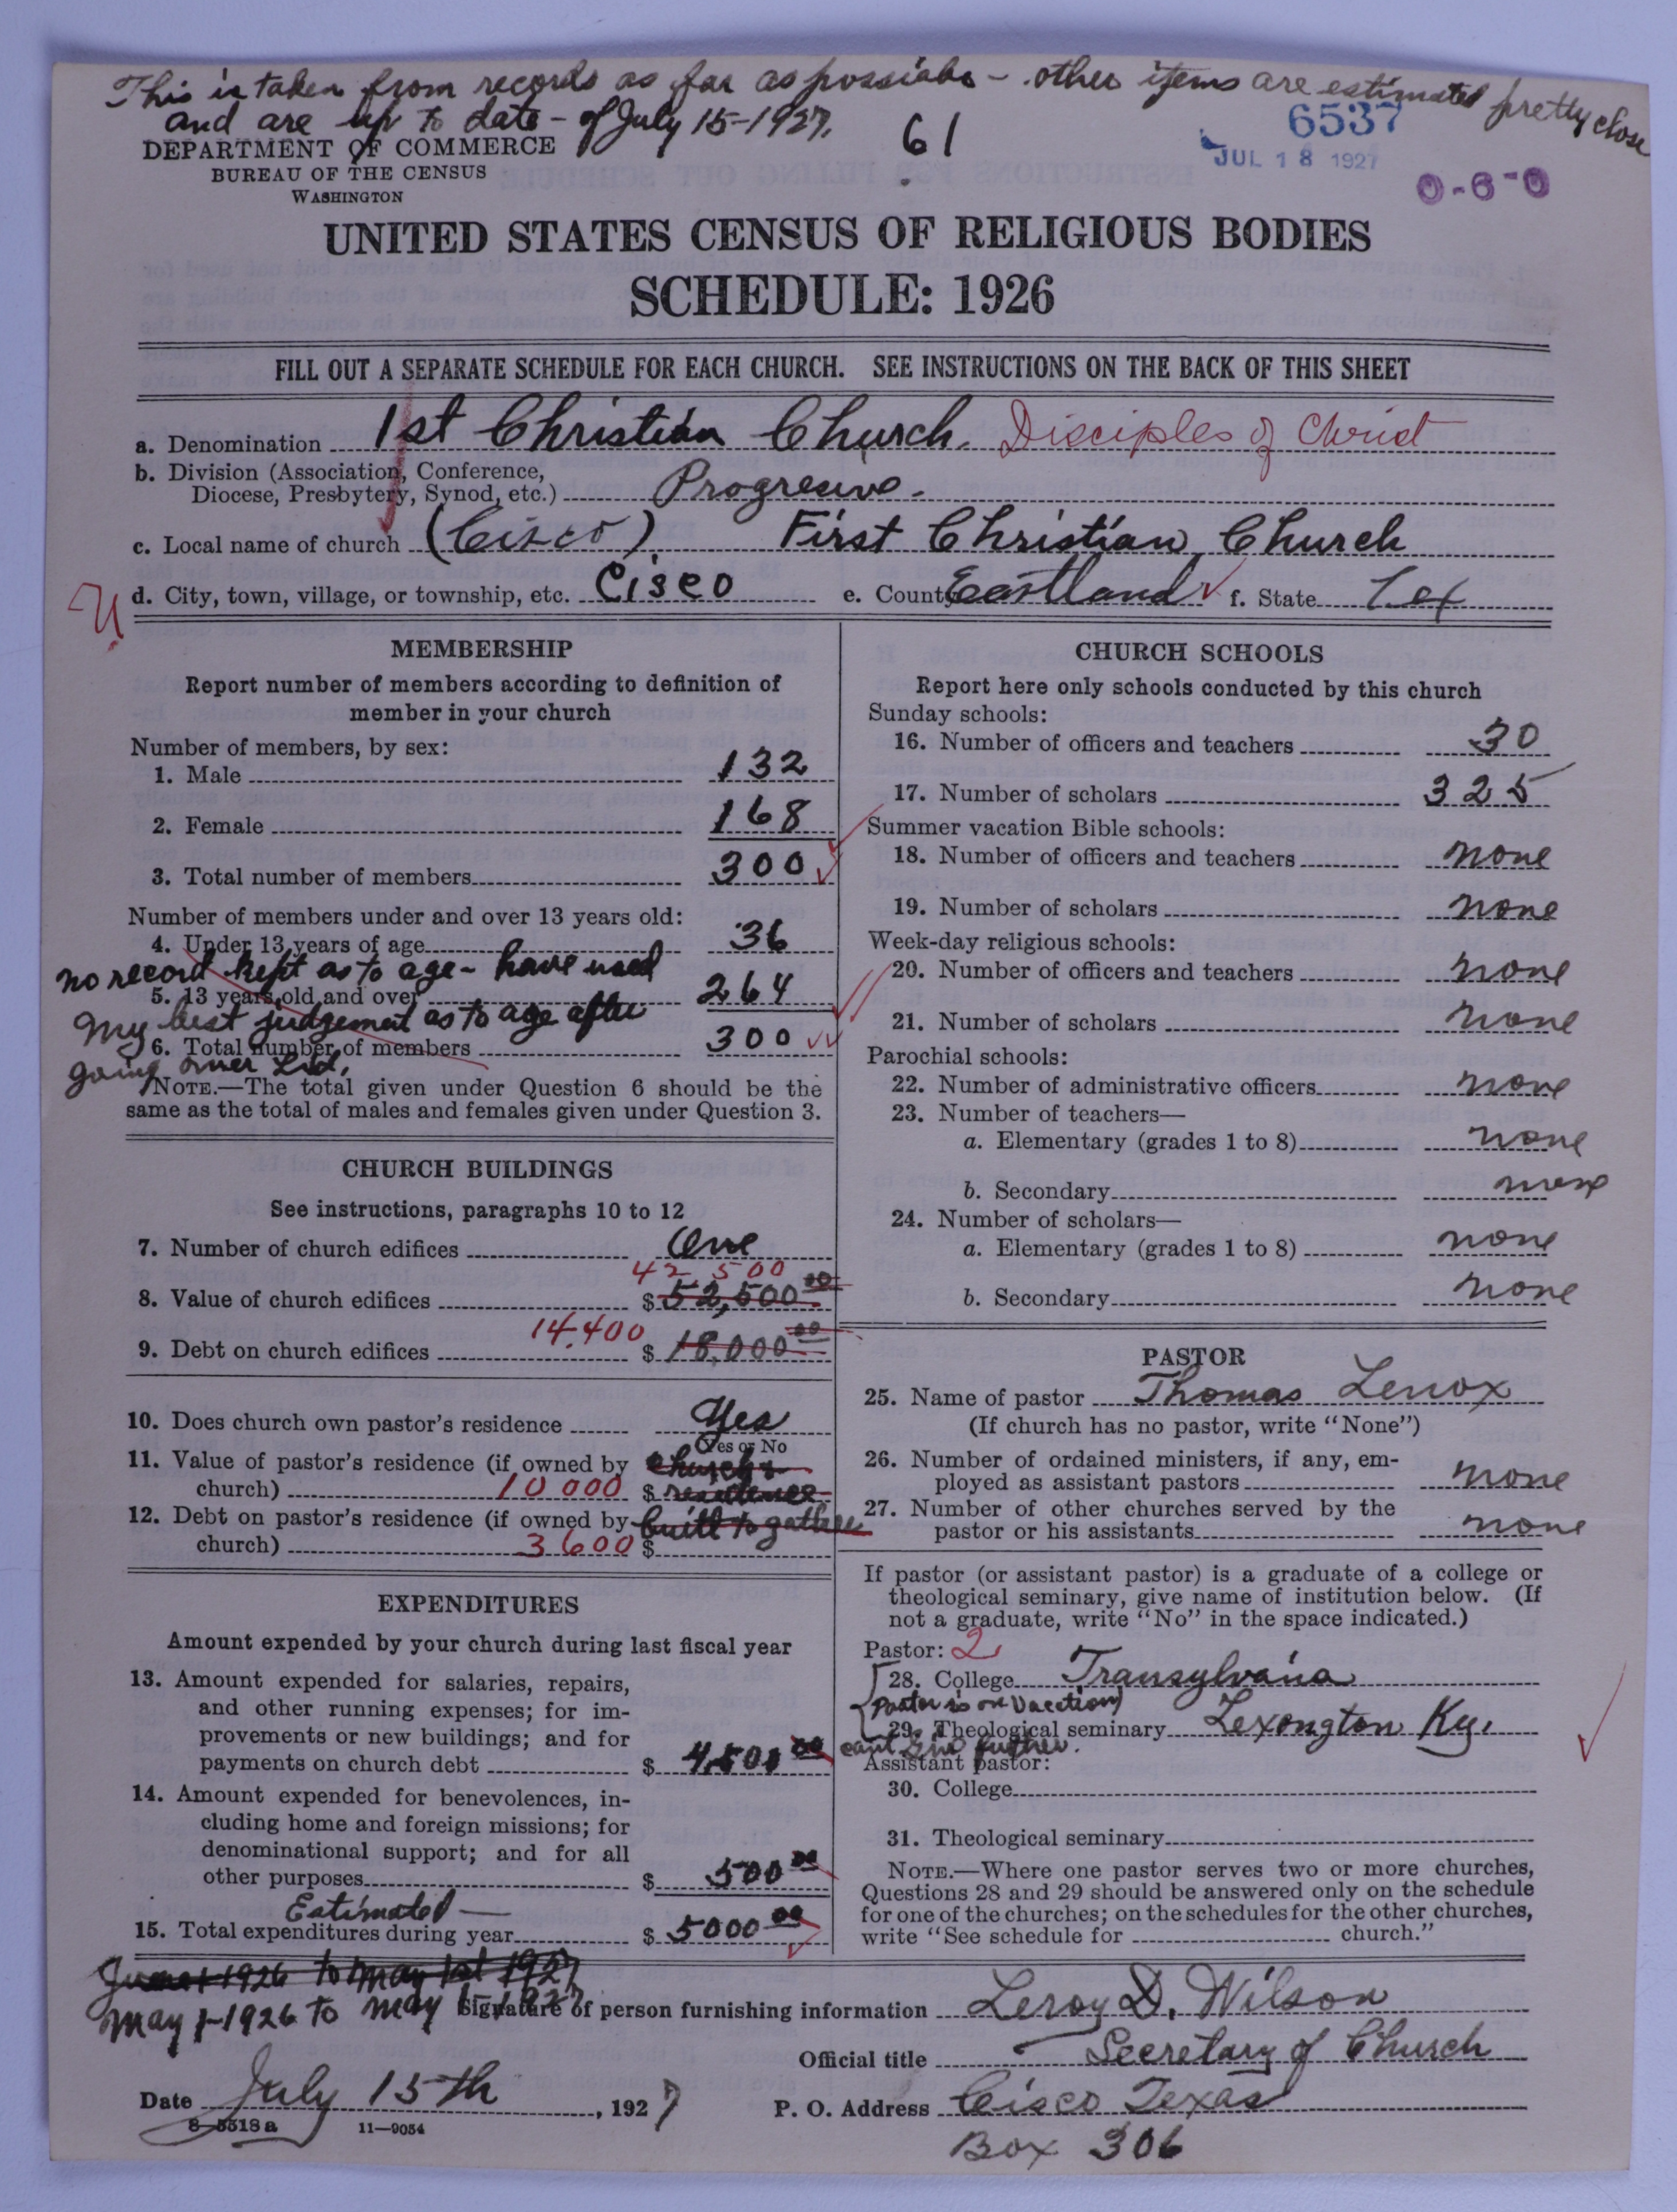 This is taken from records as far as possiable - other items are estimated pretty close
and are up to date - of July 15-1927.
61
6537
JUL 18 1927
0-6-0
DEPARTMENT OF COMMERCE
BUREAU OF THE CENSUS
WASHINGTON
UNITED STATES CENSUS OF RELIGIOUS BODIES
SCHEDULE: 1926
FILL OUT A SEPARATE SCHEDULE FOR EACH CHURCH. SEE INSTRUCTIONS ON THE BACK OF THIS SHEET
a. Denomination 1st Christian Church. Disciples of Christ
b. Division (Association, Conference,
Diocese, Presbytery, Synod, etc.) Progresive.
c. Local name of church (Cisco) First Christian Church
d. City, town, village, or township, etc. Cisco e. County Eastland f. State Tex
MEMBERSHIP
Report number of members according to definition of
member in your church
Number of members, by sex:
1. Male 132
2. Female 168
3. Total number of members 300
Number of members under and over 13 years old:
4. Under 13 years of age 36
no record kept as to age - have used
5. 13 years old and over 264
my best judgement as to age after
6. Total number of members 300
going over List.
NOTE.—The total given under Question 6 should be the
same as the total of males and females given under Question 3.
CHURCH BUILDINGS
See instructions, paragraphs 10 to 12
7. Number of church edifices One
42,500
8. Value of church edifices $ 52,500 00
14,400
9. Debt on church edifices $ 18,000 00
10. Does church own pastor's residence Yes
Yes or No
11. Value of pastor's residence (if owned by church &
church) 10 000 $ residence
12. Debt on pastor's residence (if owned by built to gather
church) 3600 $
EXPENDITURES
Amount expended by your church during last fiscal year
13. Amount expended for salaries, repairs,
and other running expenses; for im-
provements or new buildings; and for
payments on church debt $ 4,500 00
14. Amount expended for benevolences, in-
cluding home and foreign missions; for
denominational support; and for all
other purposes $ 500 00
Estimated —
15. Total expenditures during year $ 5000 00
June 1 1926 to May 1st 1927
May 1-1926 to May 1-1927
CHURCH SCHOOLS
Report here only schools conducted by this church
Sunday schools:
16. Number of officers and teachers 30
17. Number of scholars 325
Summer vacation Bible schools:
18. Number of officers and teachers none
19. Number of scholars none
Week-day religious schools:
20. Number of officers and teachers none
21. Number of scholars none
Parochial schools:
22. Number of administrative officers none
23. Number of teachers—
a. Elementary (grades 1 to 8) none
b. Secondary none
24. Number of scholars—
a. Elementary (grades 1 to 8) none
b. Secondary none
PASTOR
25. Name of pastor Thomas Lenox
(If church has no pastor, write "None")
26. Number of ordained ministers, if any, em-
ployed as assistant pastors none
27. Number of other churches served by the
pastor or his assistants none
If pastor (or assistant pastor) is a graduate of a college or
theological seminary, give name of institution below. (If
not a graduate, write "No" in the space indicated.)
Pastor: 2
28. College Transylvania
Pastor is on Vacation)
29. Theological seminary Lexongton Ky.
cant give further.
Assistant pastor:
30. College
31. Theological seminary
NOTE.—Where one pastor serves two or more churches,
Questions 28 and 29 should be answered only on the schedule
for one of the churches; on the schedules for the other churches,
write "See schedule for church."
Signature of person furnishing information Leroy D. Wilson
Official title Secretary of Church
Date July 15th, 1927 P. O. Address Cisco Texas
8-5518a 11—9054
Box 306